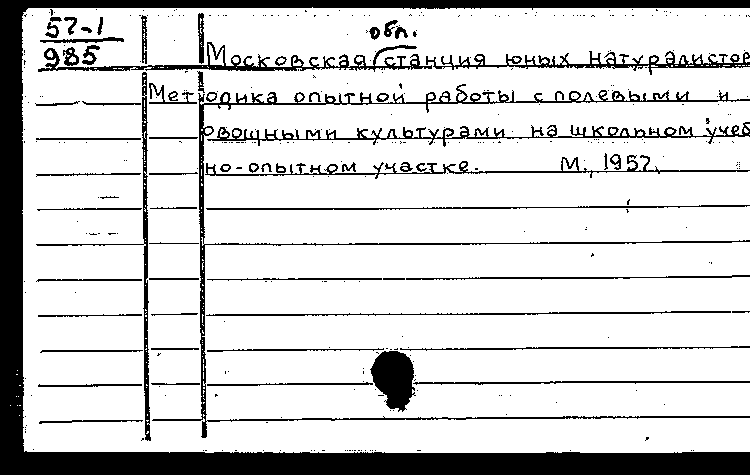 57-1
985
обл.
Московская станция юных натуралистов
Методика опытной работы с полевыми и
овощными культурами на школьном учеб
но-опытном участке. М., 1957.